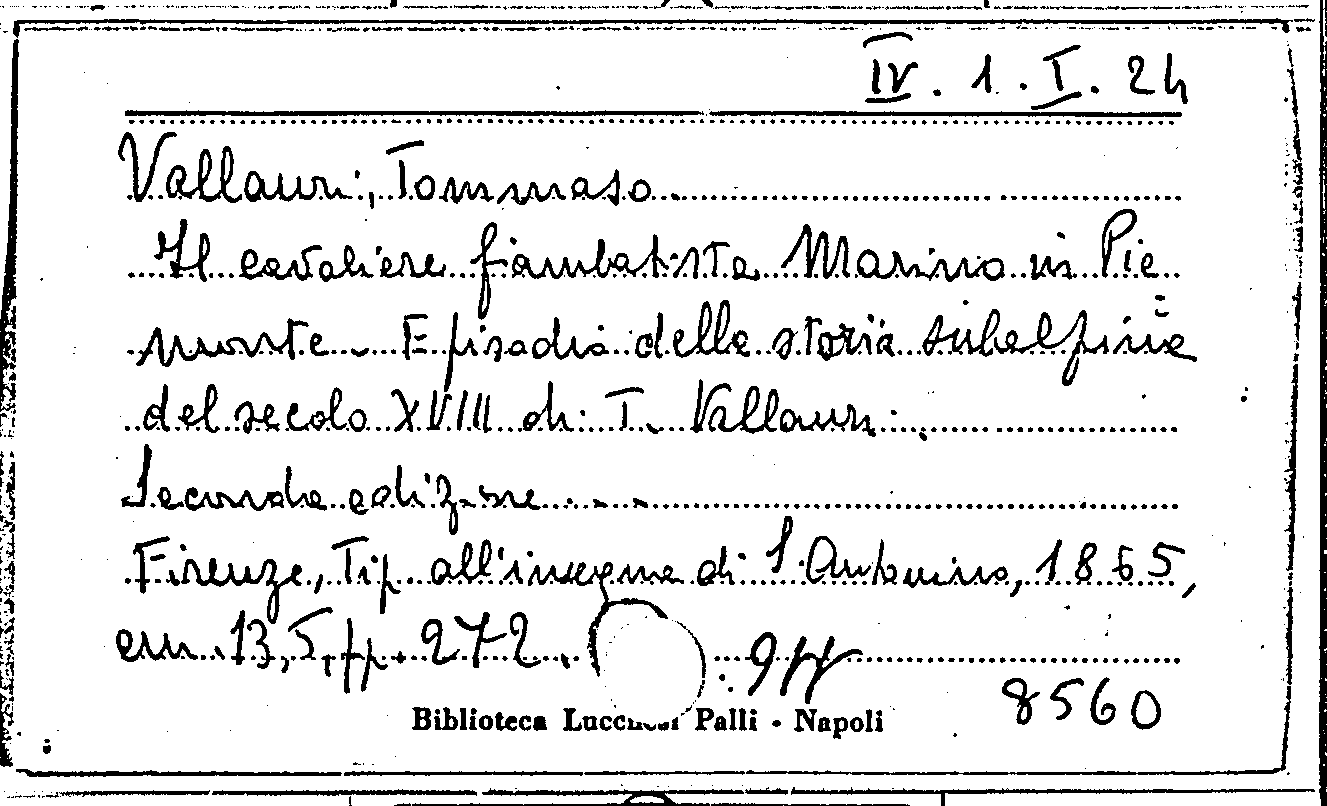 IV. 1. I. 24
Vallauri, Tommaso
Il cavaliere Giambatista Marino in Pie
monte. Episodio della storia subalpina
del secolo XVIII di T. Vallauri.
Seconda edizione
Firenze, Tip. all'insegna di S. Antonino, 1865,
cm. 13,5, pp. 272.
8560
Biblioteca Lucchesi Palli - Napoli